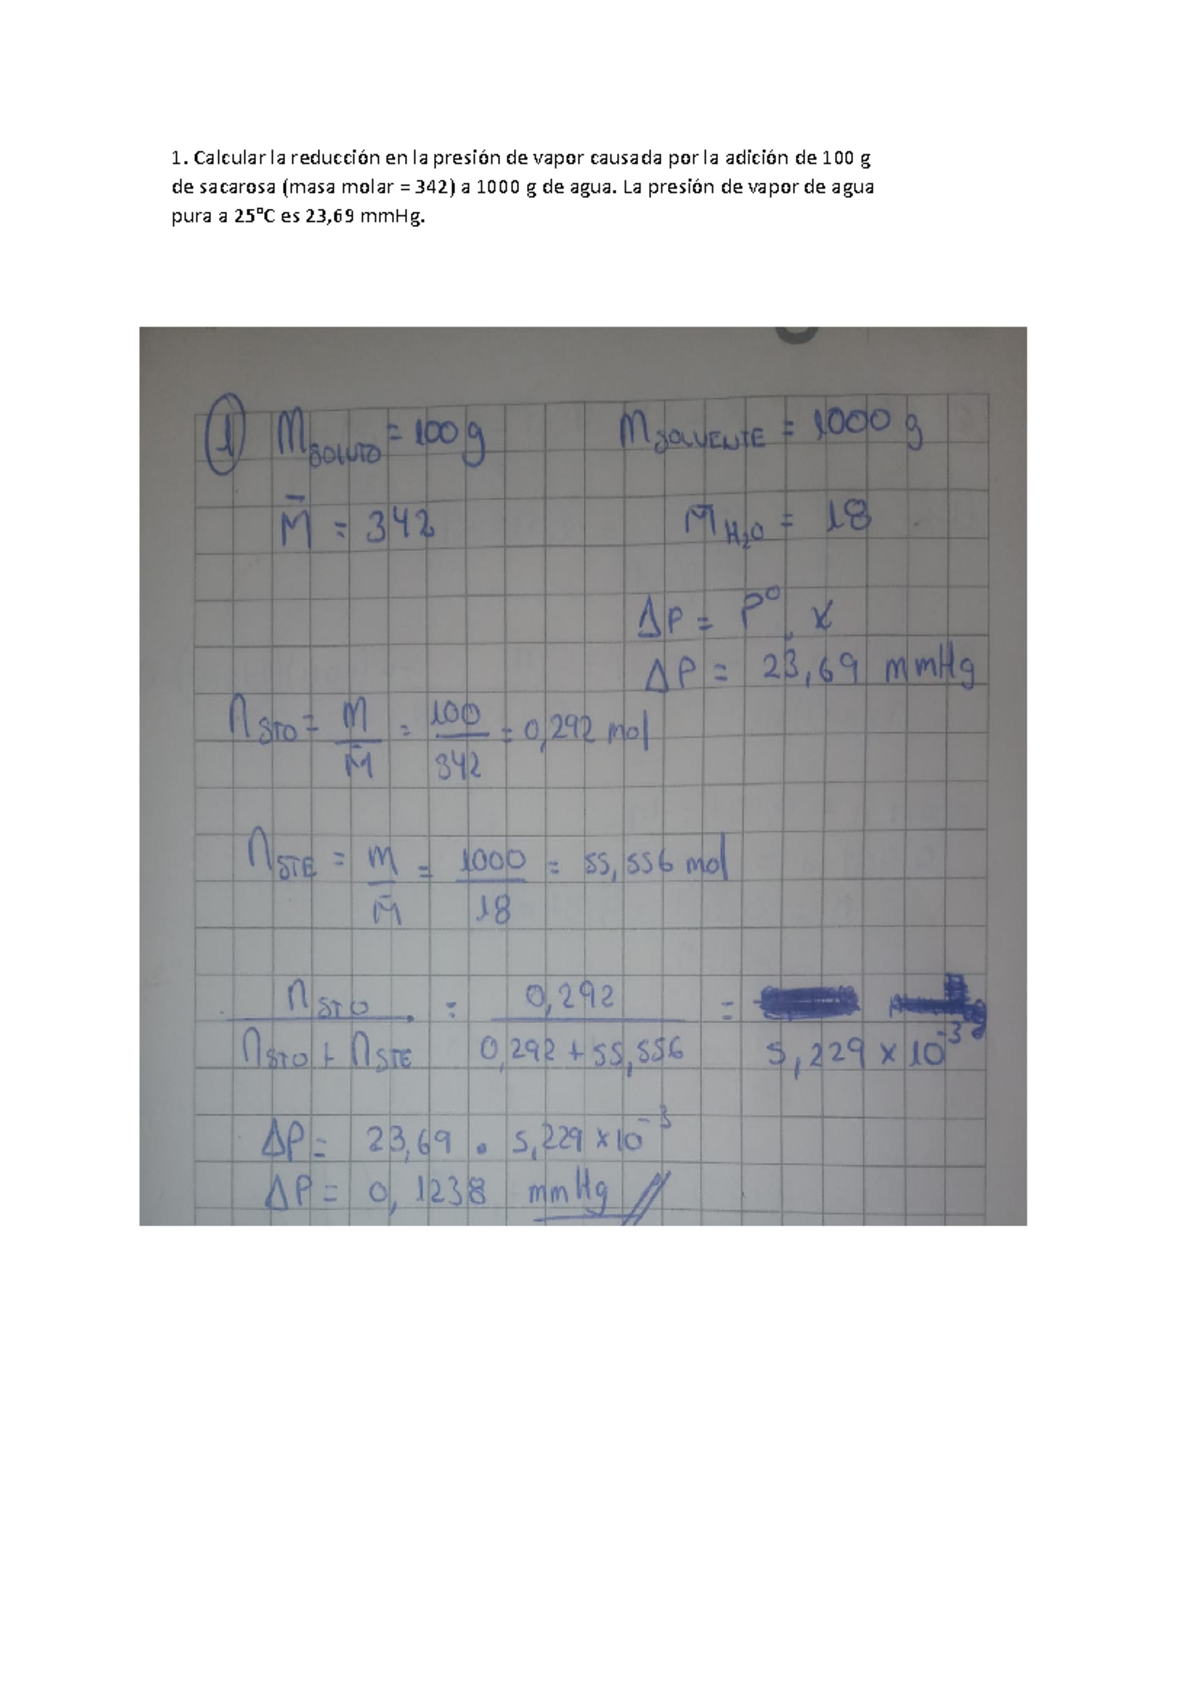 1. Calcular la reducción en la presión de vapor causada por la adición de 100 g
de sacarosa (masa molar = 342) a 1000 g de agua. La presión de vapor de agua
pura a 25°C es 23,69 mmHg.
1) M SOLUTO = 100 g    M SOLVENTE = 1000 g
M̄ = 342    M̄ H₂O = 18
ΔP = P° . x
ΔP = 23,69 mmHg
n STO = M / M̄ = 100 / 342 = 0,292 mol
n STE = m / M̄ = 1000 / 18 = 55,556 mol
n STO / n STO + n STE = 0,292 / 0,292 + 55,556 = 5,229 x 10⁻³
ΔP = 23,69 . 5,229 x 10⁻³
ΔP = 0,1238 mmHg //